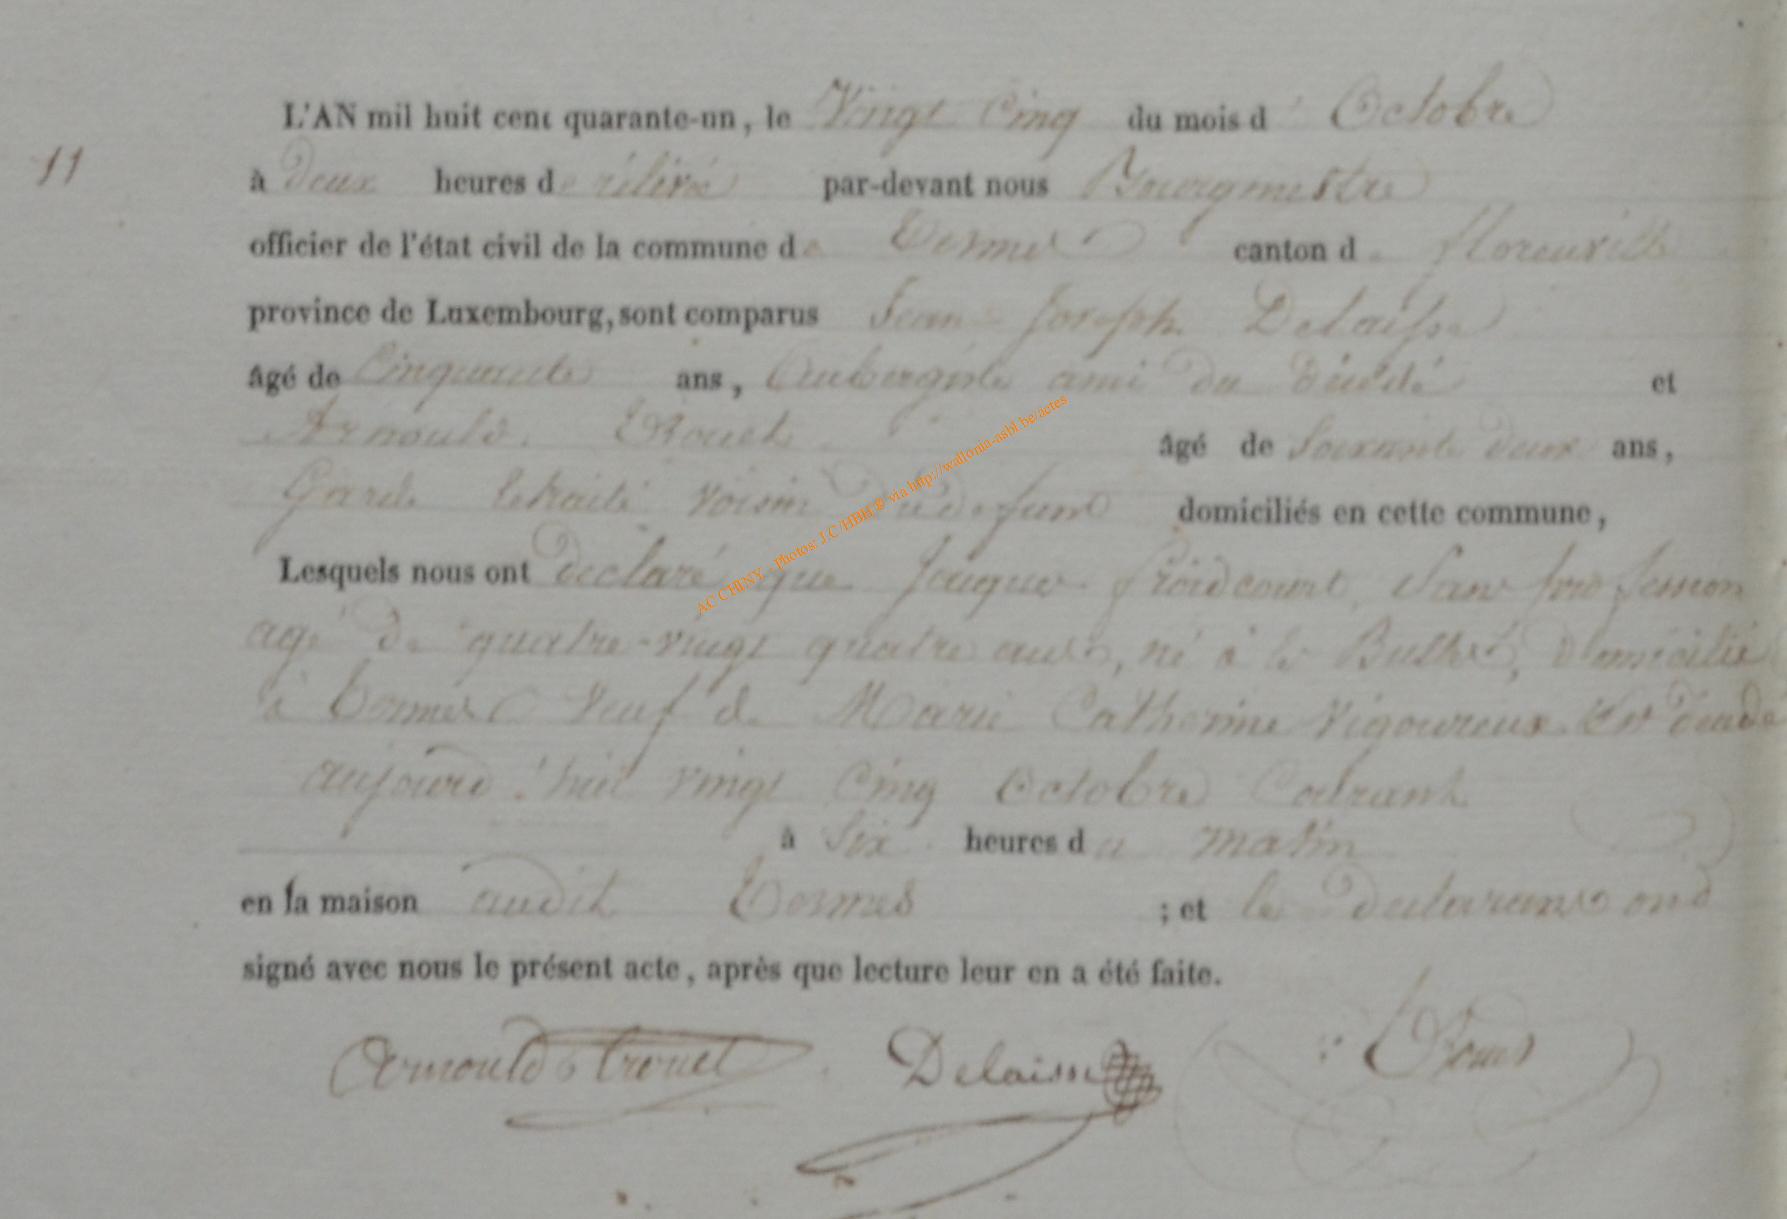 L'AN mil huit cent quarante-un, le Vingt Cinq du mois d' Octobre
11
à deux heures de rélévé par-devant nous Bourgmestre
officier de l'état civil de la commune de Termes canton de florenville
province de Luxembourg, sont comparus Jean Joseph Delaisse
âgé de Cinquante ans, Aubergiste ami du et
Arnould Trouet âgé de Soixante deux ans,
Garde Retraité voisin du défunt domiciliés en cette commune,
Lesquels nous ont declaré que Jacques froidcourt, Sans profession
agé de quatre-vingt quatre ans, né à domicilié
à Termes Veuf de Marie Catherine Vigoureux est
aujourd'hui vingt Cinq Octobre Courant
à Six heures du matin
en sa maison audit Termes ; et le declarans ond
signé avec nous le présent acte, après que lecture leur en a été faite.
Arnould Trouet Delaisse
AC CHINY - Photos: J.C /HBH @ via http://wallonia-asbl.be/actes